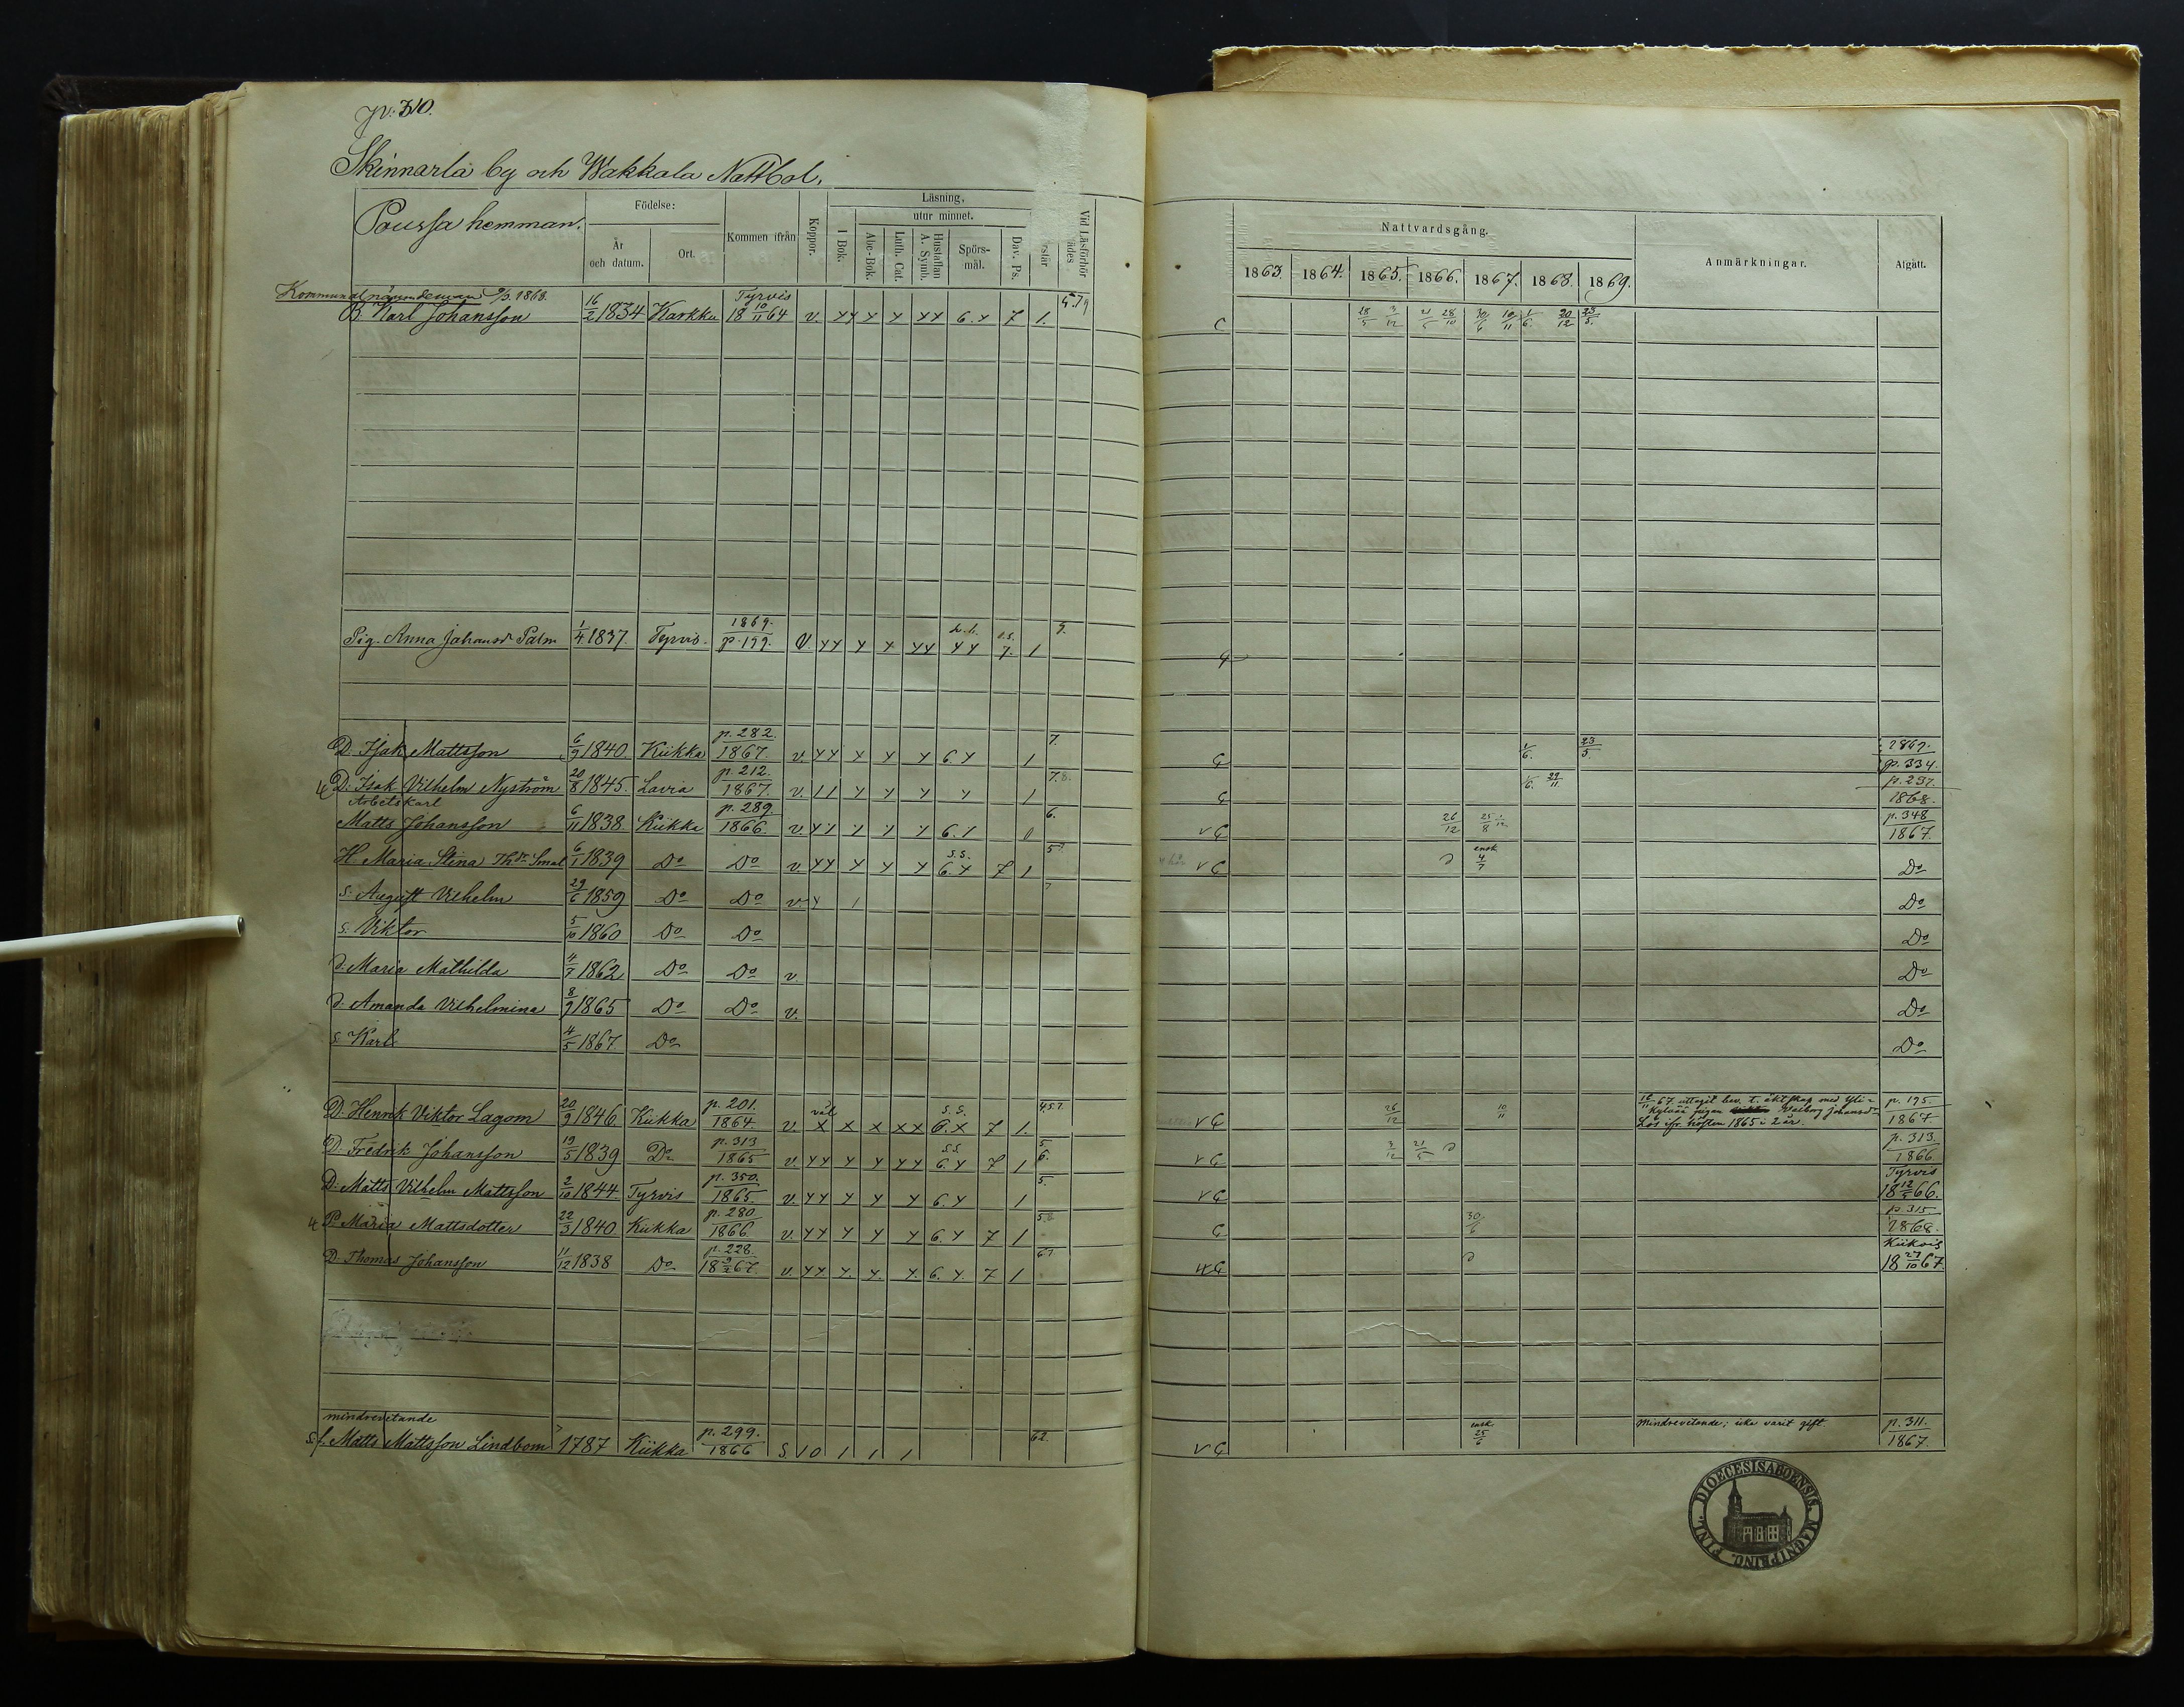 p. 310.
Skinnarla by och Wakkala Nattbol.
Poussa hemman.
Födelse:
År och datum.
Ort.
Kommen ifrån
Koppor.
Läsning,
utur minnet.
I Bok.
Abc-Bok.
Luth. Cat.
Hustaflan A. Symb.
Spörs-mål.
Dav. Ps.
Vid Läsförhör
Nattvardsgång.
1863. 1864. 1865. 1866. 1867. 1868. 1869.
Anmärkningar.
Afgått.
Kommunalnämndeman 1868.
B. Karl Johansson 16/2 1834 Karkku Tyrvis 18 10/11 64 v. 6. 7 1. 28/5 3/12 21/5 28/10 30/6 10/11 1/6. 20/12 23/5.
Pig. Anna Johansdr Palm 1/4 1837. Tyrvis. 1869. p. 199. v. 7. 1
D. Isak Mattsson 6/9 1840. Kiikka p. 282. 1867. v. 6. 1 7. 1/6. 23/5. 1869. p. 334.
D. Isak Vilhelm Nyström 20/8 1845. Lavia p. 212. 1867. v. 1 7.8. 1/6. 22/11 p. 297. 1868.
Arbetskarl
Matts Johansson 6/11 1838. Kiikka p. 289. 1866. v. 6. 6. 26/12 25/8 p. 348 1867
H. Maria Stina Thdr Smal 6/1 1839 Do Do v. s.s. 6. 7 1 ensk. 4/7 Do
s. August Vilhelm 29/6 1859 Do Do v. Do
s. Viktor 5/10 1860 Do Do Do
d. Maria Mathilda 4/7 1862 Do Do v. Do
d. Amanda Vilhelmina 8/9 1865 Do Do v. Do
s. Karl 4/5 1867. Do Do
D. Henrik Viktor Lagom 20/9 1846. Kiikka p. 201. 1864. v. väl s.s. 6. 7 1. 4.5.7. 26/12 10/11 p. 195. 1867
16/11 67. uttagit bev. t. äktskap med
pigan Valborg Johansdr
Lös ifr. hösten 1865 i 2 år.
D. Fredrik Johansson 19/5 1839 Do p. 313 1865 v. s.s. 6. 7 1 5. 6. 3/12 21/5 p. 313. 1866
D. Matts Vilhelm Mattsson 2/10 1844 Tyrvis p. 350. 1865. v. 6. 1 5. Tyrvis 18 12/5 66.
P. Maria Mattsdotter 22/3 1840 Kiikka p. 280 1866. v. 6. 7 1 30/6 p. 315 1868.
D. Thomas Johansson 11/12 1838 Do p. 228. 18 67. v. 6. 7 1 Kiikois 18 27/10 67.
mindrevetande
s.f. Matts Mattsson Lindbom 1787 Kiikka p. 299. 1866 s. 10 1 1 1 6.2. ensk. 25/6 Mindrevetande; icke varit gift. p. 311. 1867.
DIOECESIS ABOENSIS. MAGNI PRINC. FINL.